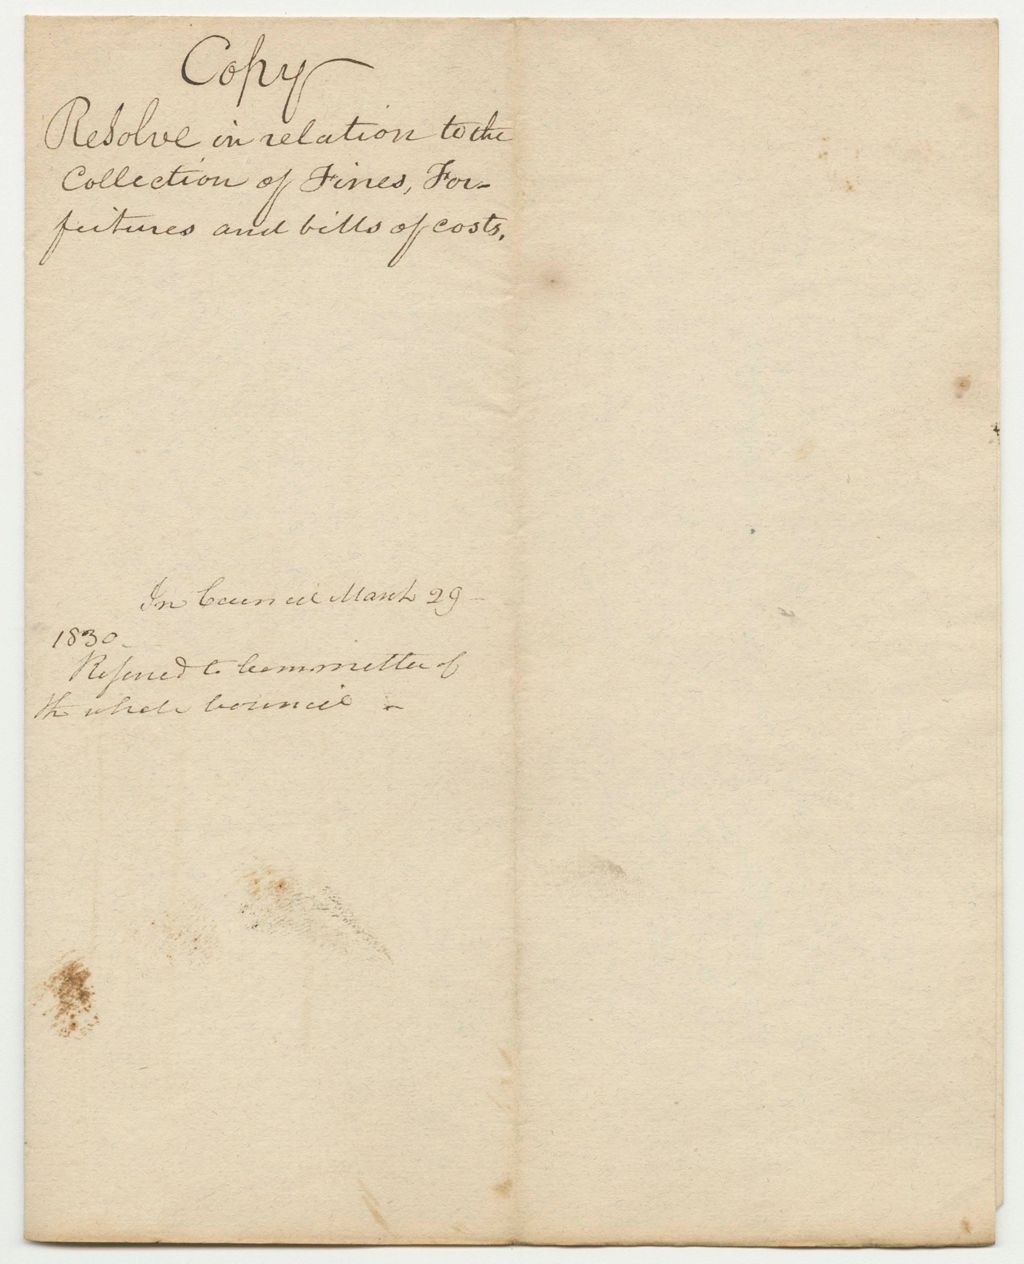 Copy
Resolve in relation to the
Collection of Fines, For-
feitures and bills of costs.
In Council March 29
1830.
Referred to Committee of
the whole Council